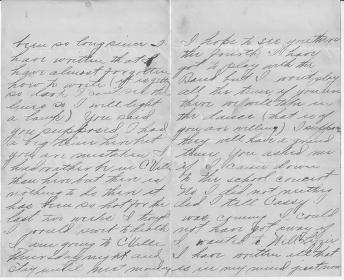 been so long since I
have written that I
have almost forgotten
how to write (it is getting
so dark I can't see the
lines so I will light
a lamp) You said
you supposed I had
a big time here but
you are mistaken I
had rather be in CVille
than here but there is
nothing to do then it
has been so hot for the
last two weeks I hope
I would sort to death
I am going to CVille
Thursday night and
stay until next monday
I hope to see you there
the fourth. I have
got to play with the
Band but I wont play
all the time if you are
there we will take in
the dance (that is if
you are willing) I suppose
they will have a grand
time. You asked me
if I came down
to the school concert
No I did not neither
did I tell Casey I
was coming I could
not have got away if
I wanted to Well
I have written all that
is in my mind just now